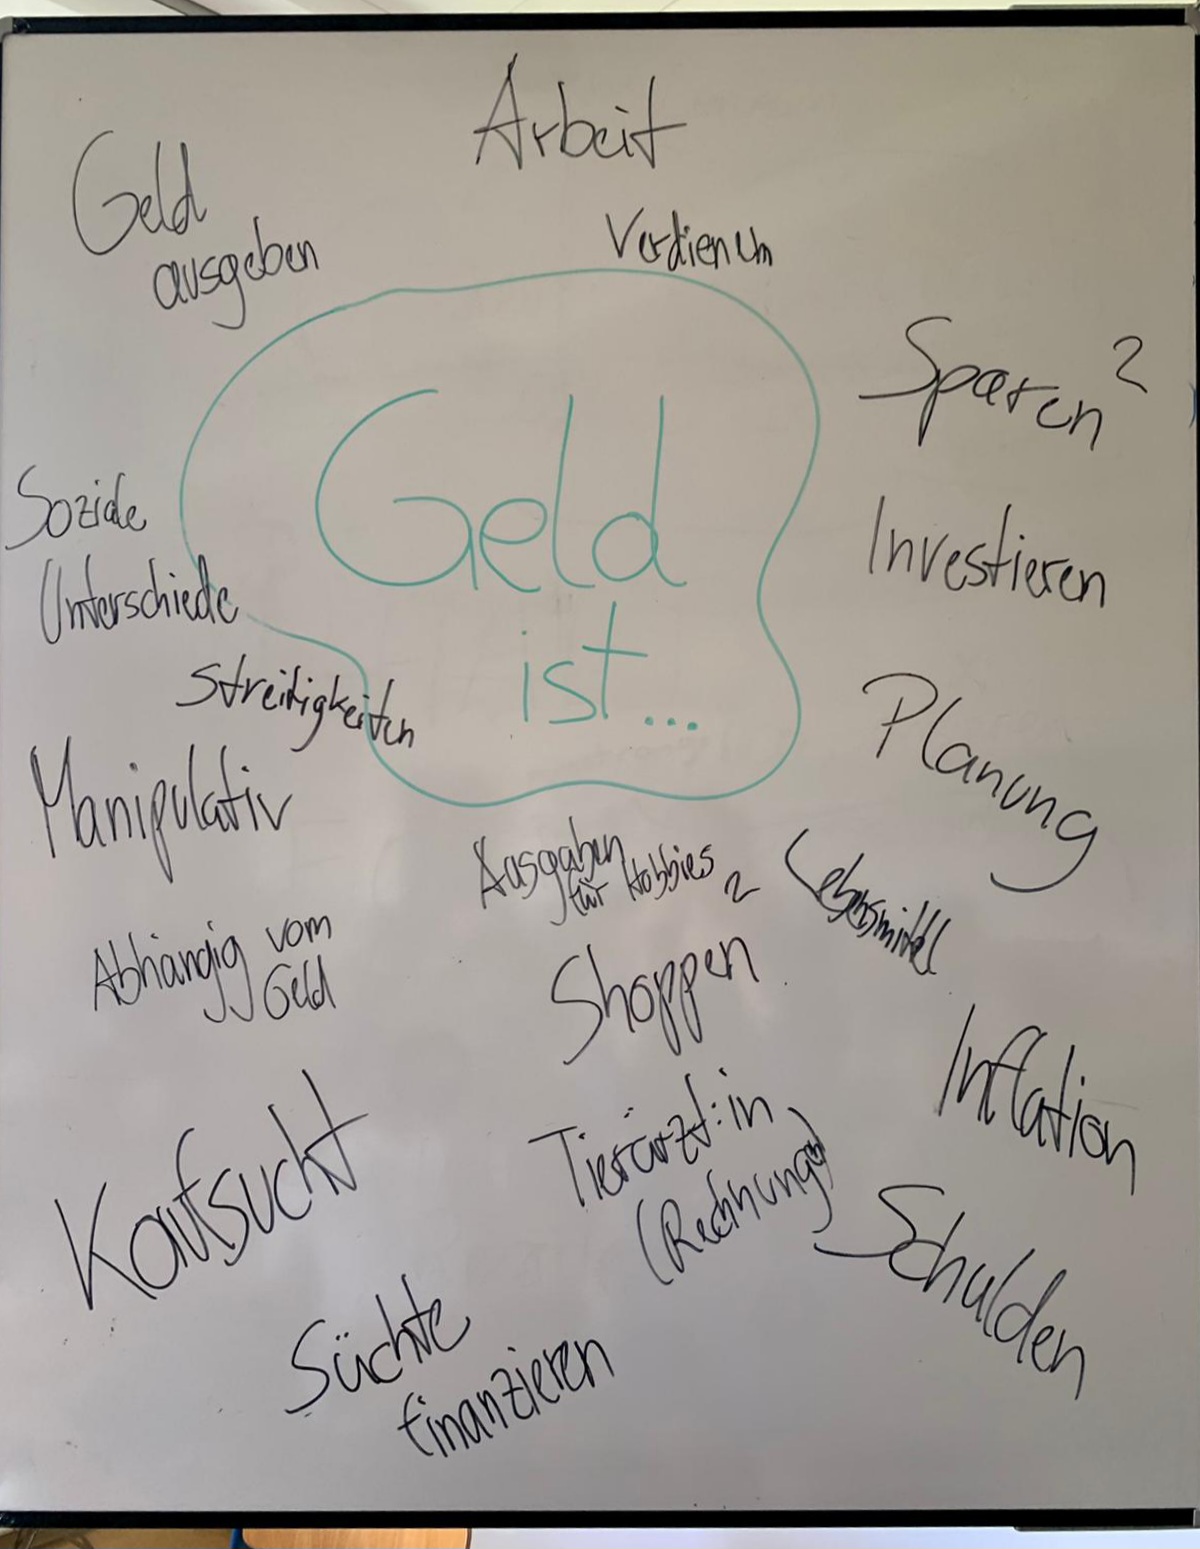 Arbeit
Geld
ausgeben
Verdienen
Sparen 2
Geld
ist...
Investieren
Soziale
Unterschiede
Streitigkeiten
Planung
Manipulativ
Ausgaben
für Hobbies
2
Lebensmittel
Abhängig vom
Geld
Shoppen
Inflation
Kaufsucht
Tierärzt:in
(Rechnungen)
Schulden
Süchte
finanzieren